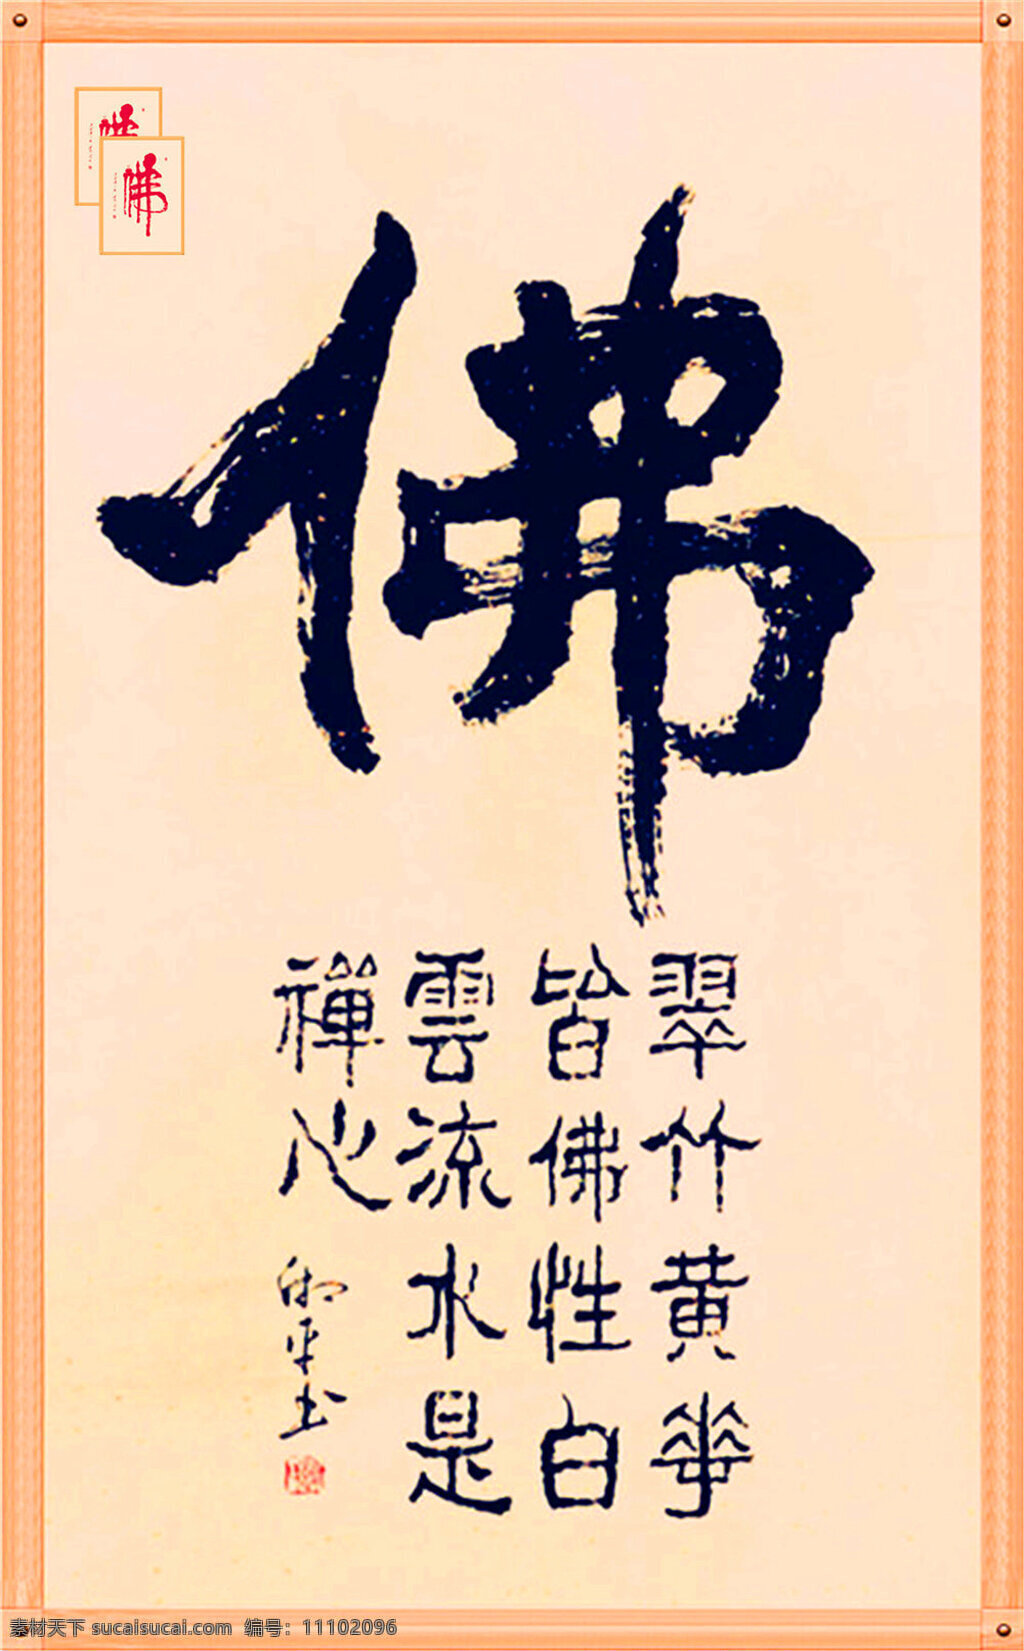 佛
佛
翠竹黄華
皆佛性白
雲流水是
禪心
素材天下 sucaisucai.com 编号：11102096